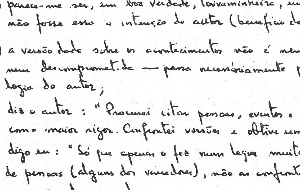 parece-me ser, em boa verdade, 
não fosse essa a intenção do autor (benefício da
a versão dada sobre os acontecimentos não é
nem descomprometida — passa necessariamente
logia do autor;
diz o autor: "Procurei citar pessoas, eventos e
como maior rigor. Confrontei versões e obtive
digo eu: "Só que apenas o fez num leque muito
de pessoas (alguns dos vencedores), não as confrontou